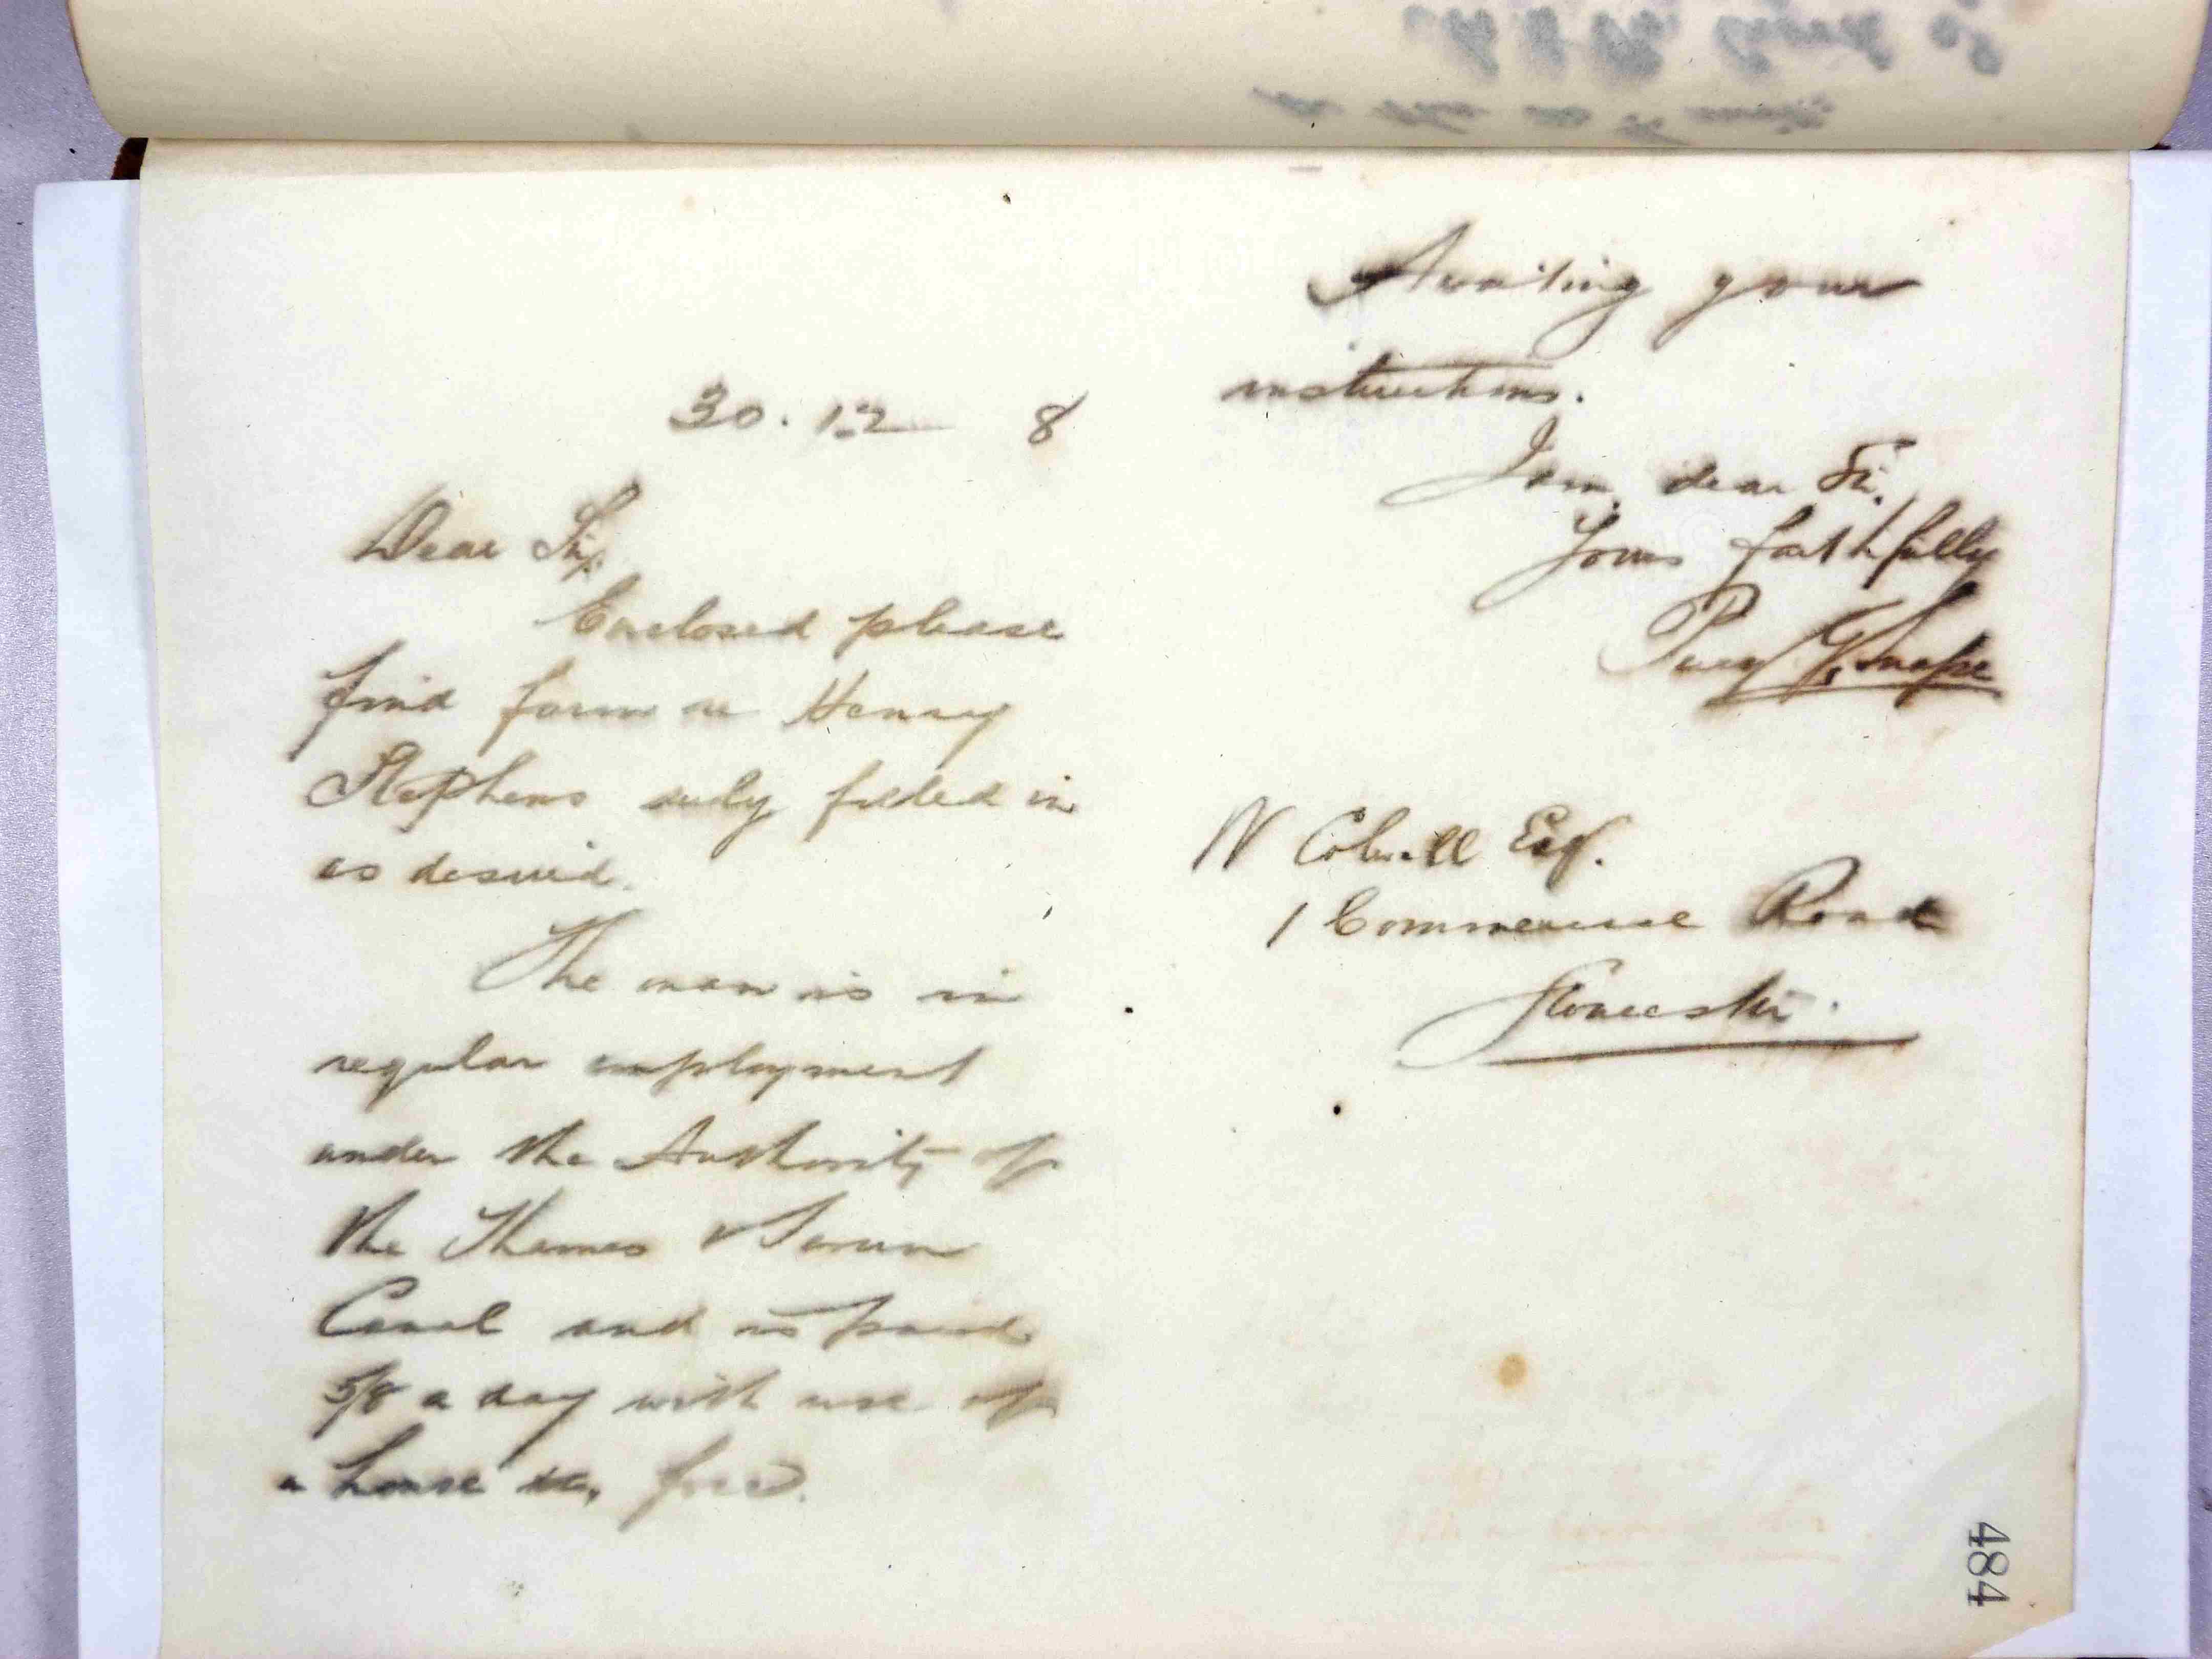 30.12 8
Dear Sir,
Enclosed please
find form re Henry
Stephens duly filled in
as desired.
The man is in
regular employment
under the Authority of
the Thames & Severn
Canal and is paid
5/8 a day with use of
a house &c, free.
Awaiting your
instructions.
I am, dear Sir,
Yours faithfully
Percy G. Snape
W Colwell Esq.
1 Commercial Road
Gloucester.
484